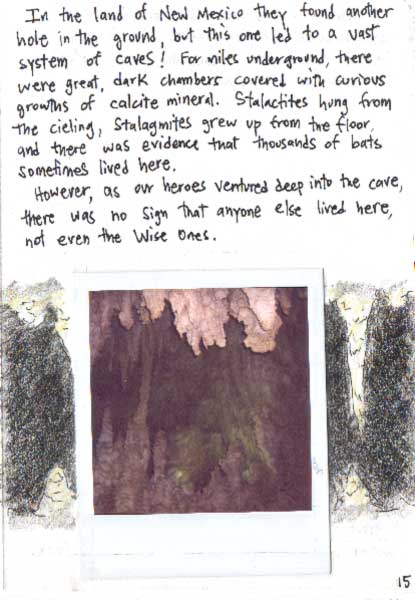 In the land of New Mexico they found another
hole in the ground, but this one led to a vast
system of caves! For miles underground, there
were great, dark chambers covered with curious
growths of calcite mineral. Stalactites hung from
the cieling, Stalagmites grew up from the floor,
and there was evidence that thousands of bats
sometimes lived here.
However, as our heroes ventured deep into the cave,
there was no sign that anyone else lived here,
not even the Wise Ones.
15